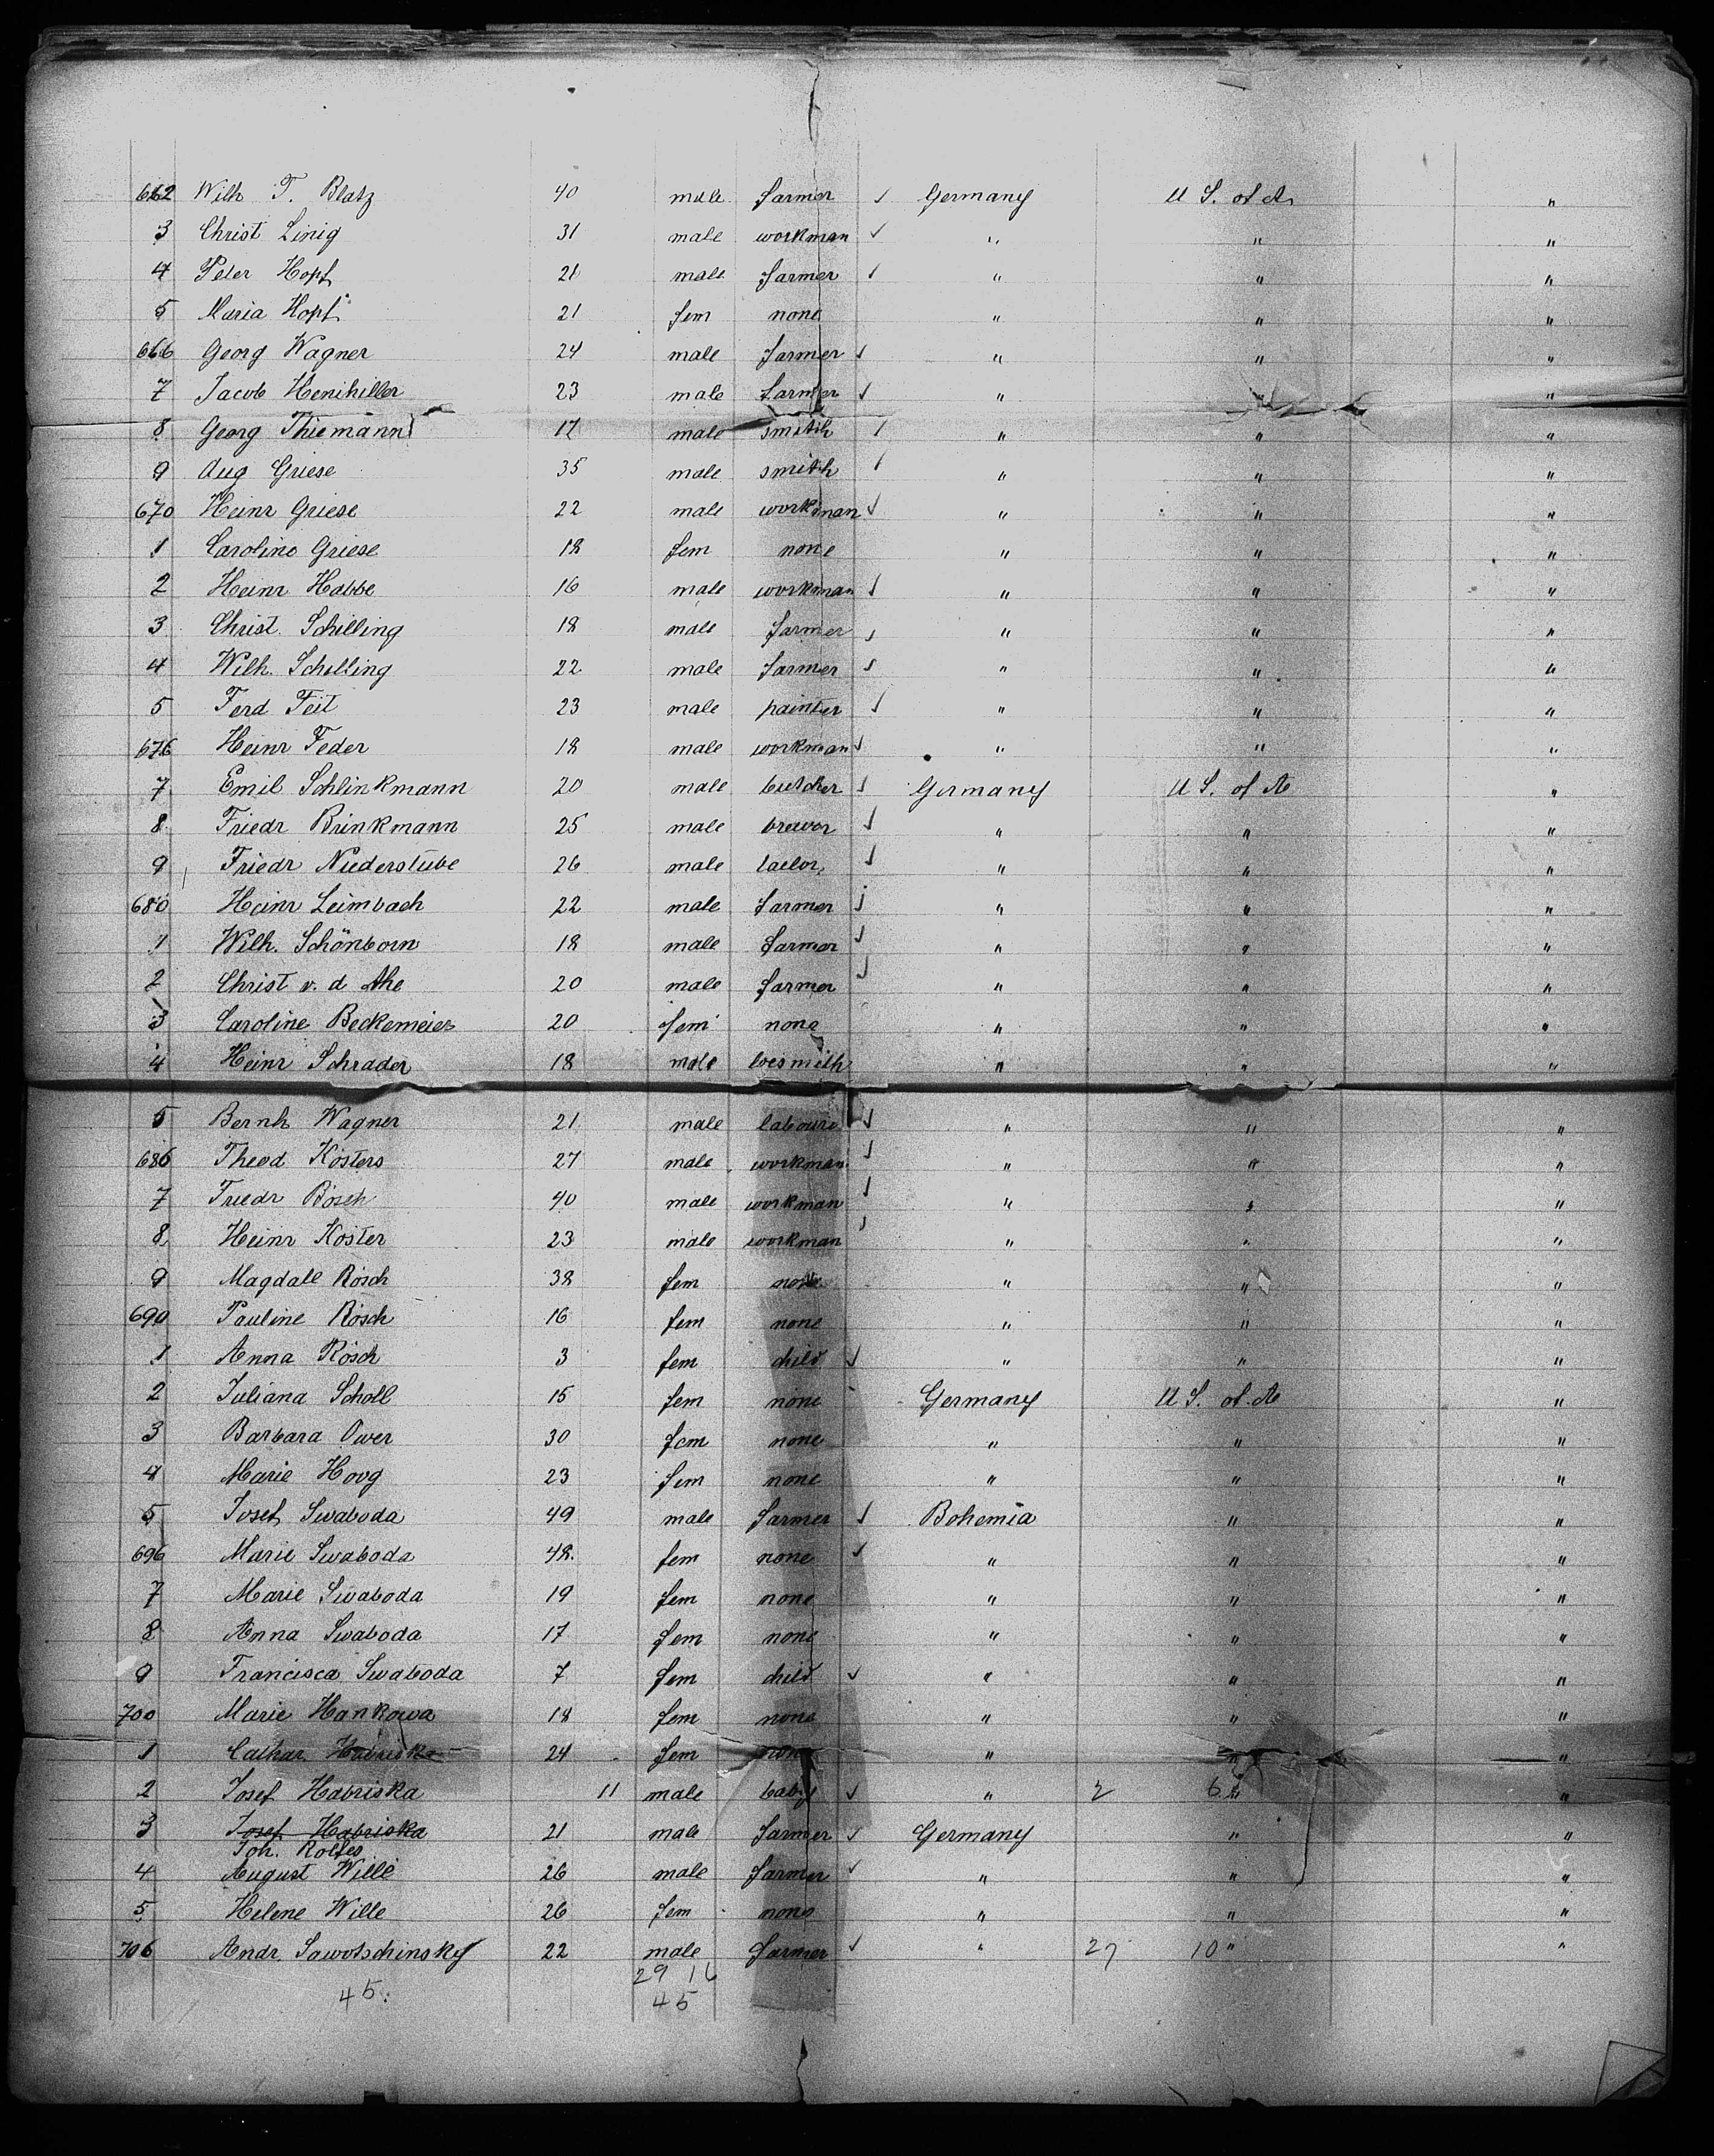 662 Wilh T. Blatz 40 male farmer ✓ Germany U S. of A. "
3 Christ Linig 31 male workman ✓ " " "
4 Peter Hopf 21 male farmer ✓ " " "
5 Maria Hopf 21 fem none " " "
666 Georg Wagner 24 male farmer ✓ " " "
7 Jacob Henihiller 23 male farmer ✓ " " "
8 Georg Thiemann 17 male smith ✓ " " "
9 Aug Griese 35 male smith ✓ " " "
670 Heinr Griese 22 male workman ✓ " " "
1 Caroline Griese 18 fem none " " "
2 Heinr Habbe 16 male workman ✓ " " "
3 Christ. Schilling 18 male farmer ✓ " " "
4 Wilh. Schilling 22 male farmer ✓ " " "
5 Ferd Feit 23 male painter ✓ " " "
676 Heinr Feder 18 male workman ✓ " " "
7 Emil Schlinkmann 20 male butcher ✓ Germany U S. of A "
8 Friedr Brinkmann 25 male brewer ✓ " " "
9 Friedr Niederstube 26 male tailor ✓ " " "
680 Heinr Leimbach 22 male farmer ✓ " " "
1 Wilh. Schönborn 18 male farmer ✓ " " "
2 Christ v. d Ahe 20 male farmer ✓ " " "
3 Caroline Beckemeier 20 fem none " " "
4 Heinr Schrader 18 male " " "
5 Bernh Wagner 21 male laboure ✓ " " "
686 Theod Kösters 27 male workman ✓ " " "
7 Friedr Rösch 40 male workman ✓ " " "
8 Heinr Koster 23 male workman ✓ " " "
9 Magdale Rösch 38 fem none " " "
690 Pauline Rösch 16 fem none " " "
1 Anna Rösch 3 fem child ✓ " " "
2 Juliana Scholl 15 fem none Germany U S. of A "
3 Barbara Ower 30 fem none " " "
4 Marie Hoog 23 fem none " " "
5 Josef Swaboda 49 male farmer ✓ Bohemia " "
696 Marie Swaboda 48. fem none ✓ " " "
7 Marie Swaboda 19 fem none " " "
8 Anna Swaboda 17 fem none " " "
9 Francisca Swaboda 7 fem child ✓ " " "
700 Marie Hankowa 18 fem none " " "
1 Cathar. Habriska 24 fem none " " "
2 Josef Habriska 11 male baby ✓ " 2 6 " "
3 Josef Habriska 21 male farmer ✓ Germany " "
Joh. Rolfes
4 August Wille 26 male farmer ✓ " " "
5 Helene Wille 26 fem none " " "
706 Andr. Sawotschinsky 22 male farmer ✓ " 27 10 " "
29 16
45. 45